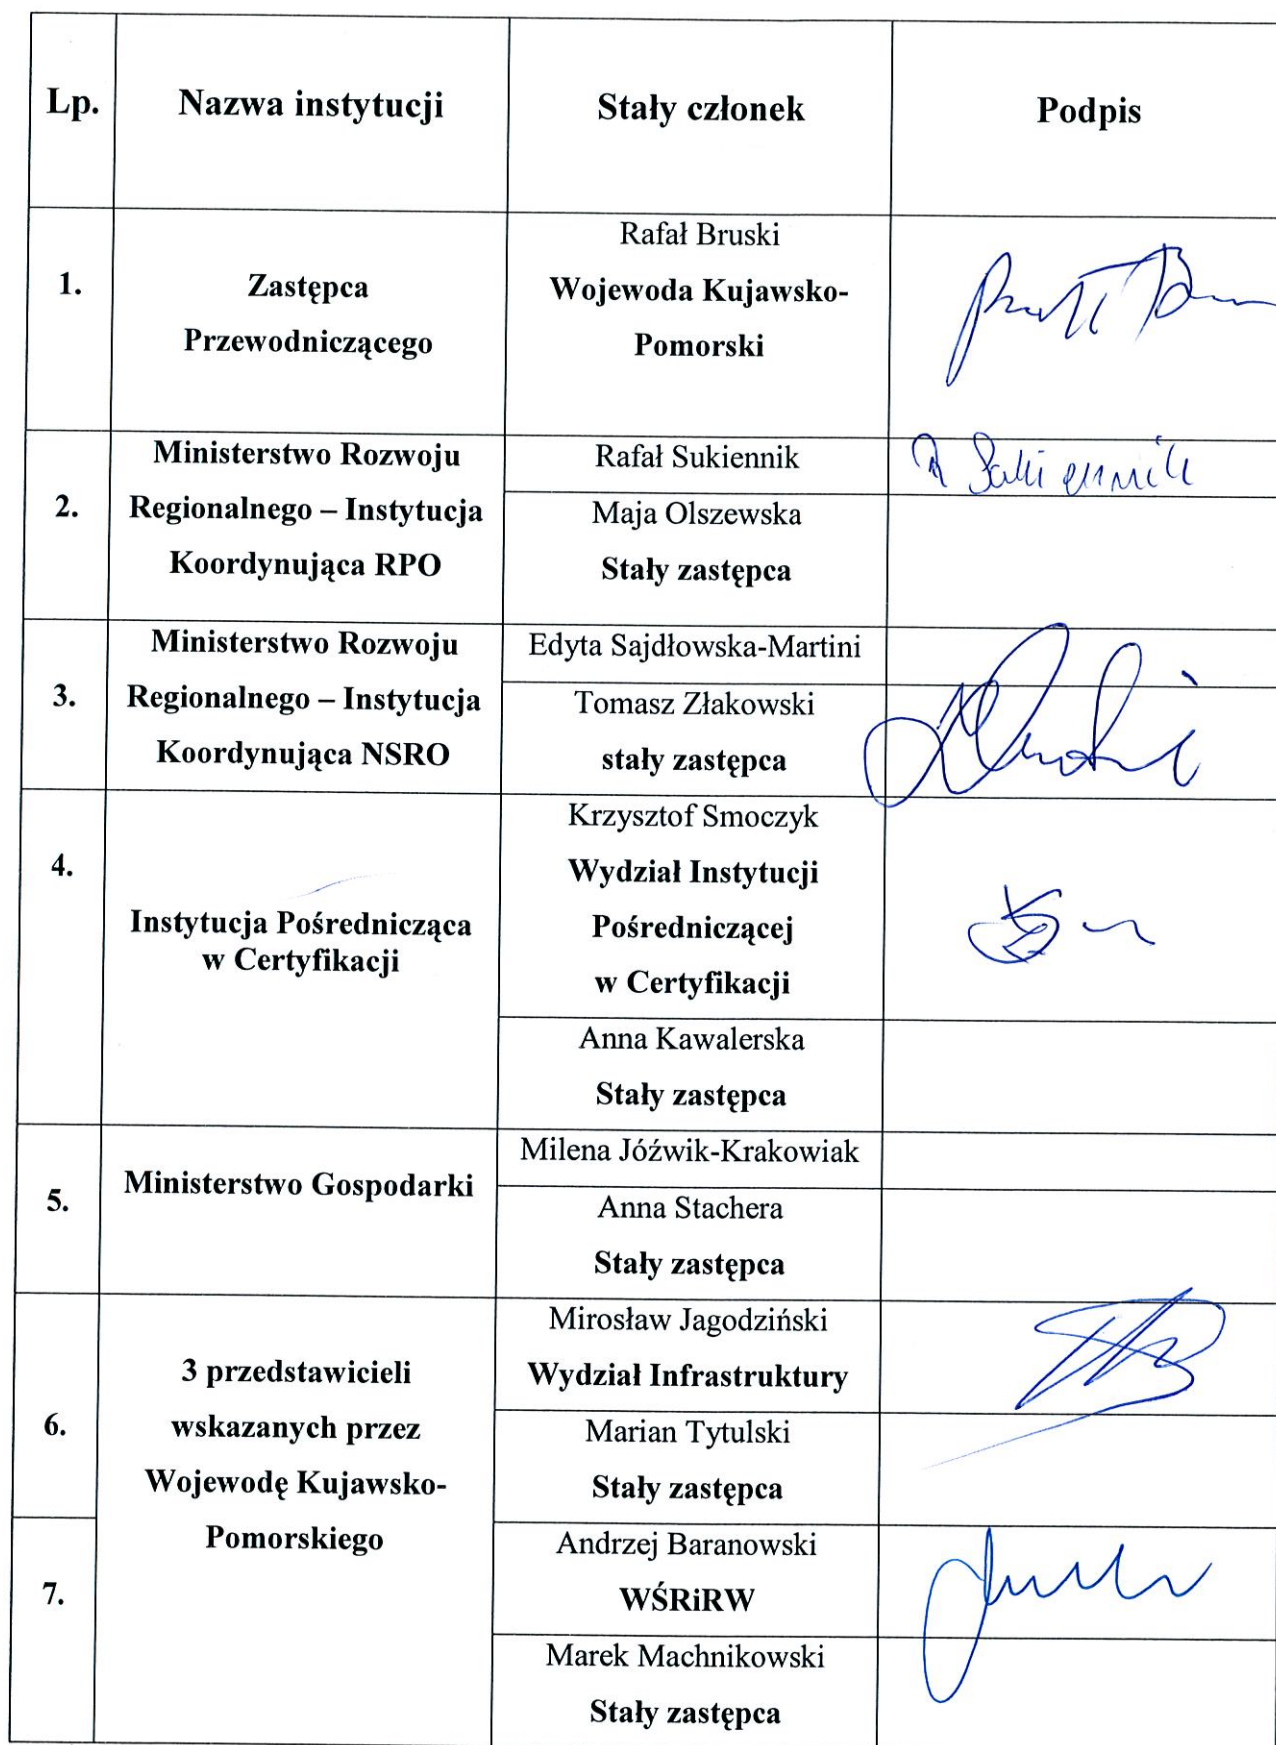 Lp.
Nazwa instytucji
Stały członek
Podpis
1.
Zastępca
Przewodniczącego
Rafał Bruski
Wojewoda Kujawsko-
Pomorski
2.
Ministerstwo Rozwoju
Regionalnego – Instytucja
Koordynująca RPO
Rafał Sukiennik
R Sukiennik
Maja Olszewska
Stały zastępca
3.
Ministerstwo Rozwoju
Regionalnego – Instytucja
Koordynująca NSRO
Edyta Sajdłowska-Martini
Tomasz Złakowski
stały zastępca
4.
Instytucja Pośrednicząca
w Certyfikacji
Krzysztof Smoczyk
Wydział Instytucji
Pośredniczącej
w Certyfikacji
Anna Kawalerska
Stały zastępca
5.
Ministerstwo Gospodarki
Milena Jóźwik-Krakowiak
Anna Stachera
Stały zastępca
6.
3 przedstawicieli
wskazanych przez
Wojewodę Kujawsko-
Pomorskiego
Mirosław Jagodziński
Wydział Infrastruktury
Marian Tytulski
Stały zastępca
7.
Andrzej Baranowski
WŚRiRW
Marek Machnikowski
Stały zastępca